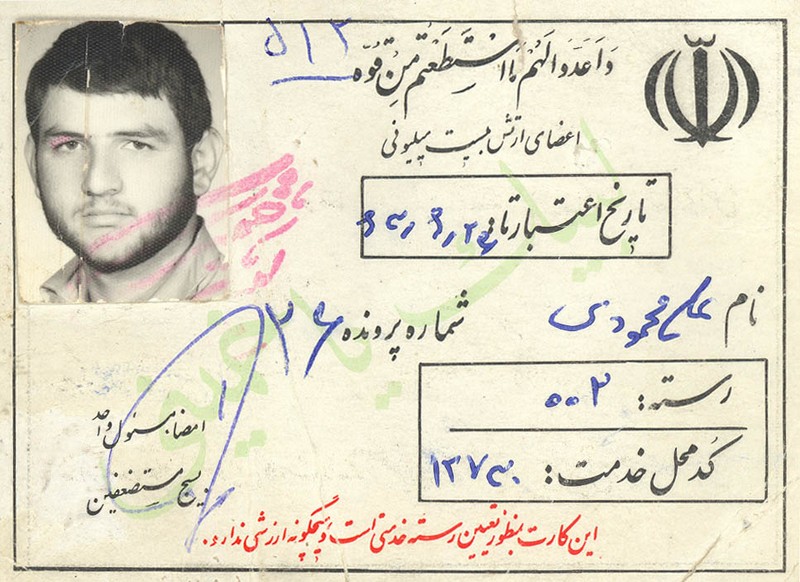 ۵۱۲
وَاَعِدُّوا لَهُمْ مَا اسْتَطَعْتُمْ مِنْ قُوَّه
اعضای ارتش بیست میلیونی
تاریخ اعتبار تا:
نام علی محمودی
شماره پرونده ۲۶
رسته: ۵۵۲
کد محل خدمت: ۱۲۷۳۰
امضاء مسئول واحد
بسیج مستضعفین
لبیک یا خمینی
این کارت بمنظور تعیین رسته خدمتی است و هیچگونه ارزشی ندارد.